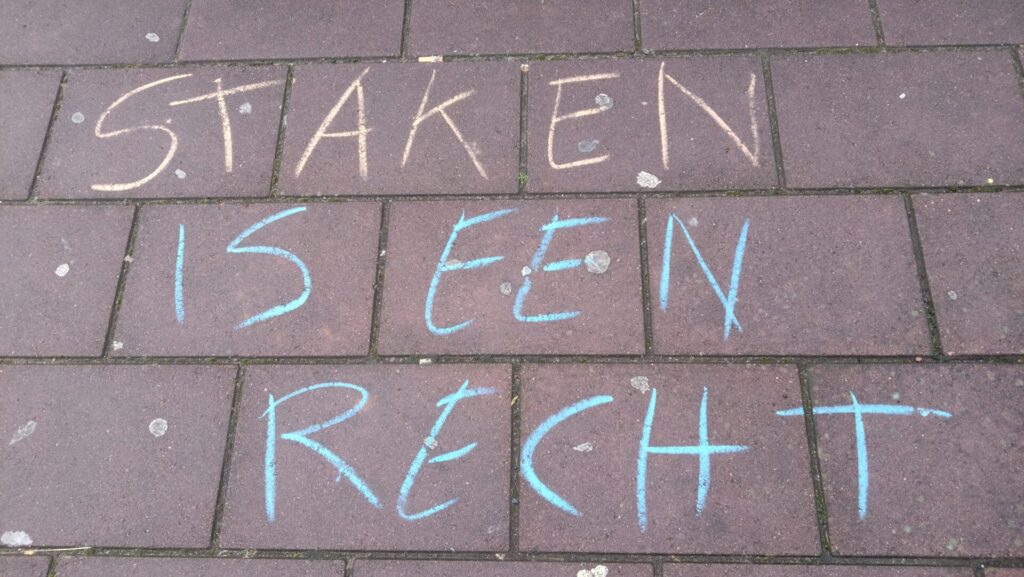 STAKEN
IS EEN
RECHT